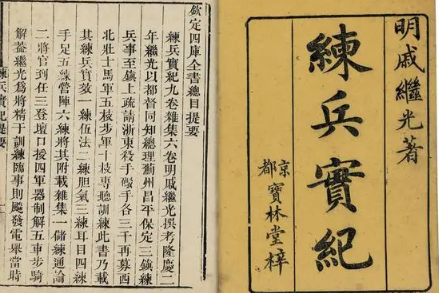 明戚繼光著
練兵實紀
京都
寶林堂梓
欽定四庫全書總目提要
練兵實紀九卷雜集六卷明戚繼光撰考隆慶二
年繼光以都督同知總理薊州昌平保定三鎮練
兵事至鎮上疏請浙東殺手礮手各三千再募西
北壯士馬軍五枝步軍十枝專聽訓練此書乃載
其練兵實效一練伍法二練胆氣三練耳目四練
手足五練營陣六練將其附載雜集一儲練通論
二將官到任三登壇口授四軍器制解五車步騎
解蓋繼光為將精于訓練臨事則飈發電舉當時
練兵實紀提要